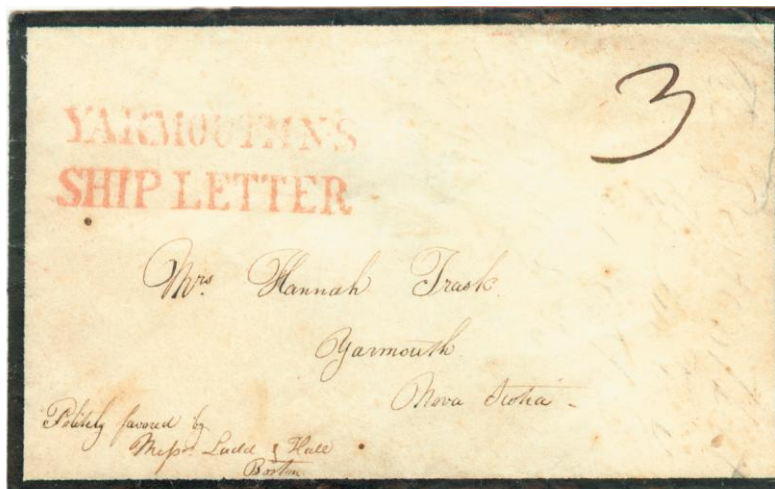 3
YARMOUTH NS
SHIP LETTER
Mrs. Hannah Trask.
Yarmouth
Nova Scotia -
Politely favored by
Messrs Ladd & Hall
Boston.